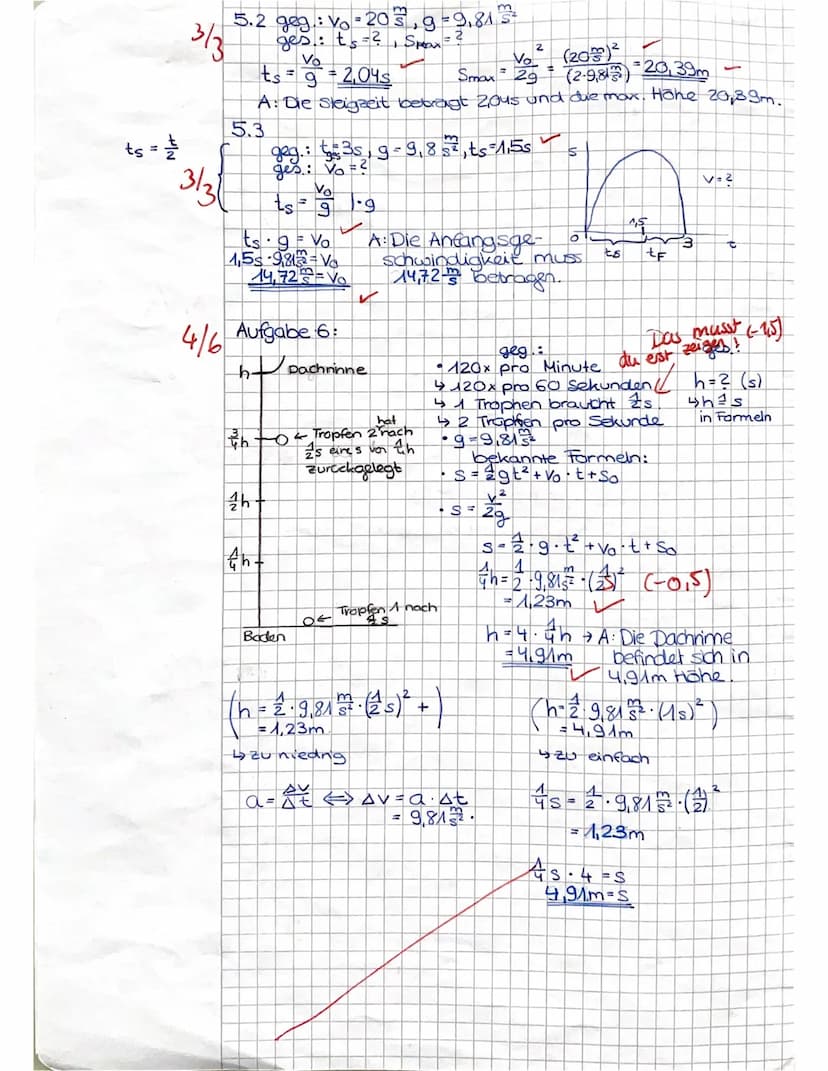 5.2 geg.: v₀ = 20 m/s, g = 9,81 m/s²
3/3
ges.: ts = ?, Smax = ?
ts = v₀/g = 2,04s ✓ Smax = v₀²/2g = (20 m/s)²/(2·9,81 m/s²) = 20,39m ✓
A: Die Steigzeit beträgt 2,04s und die max. Höhe 20,39m.
5.3
ts = t/2
geg.: tges = 3s, g = 9,8 m/s², ts = 1,5s ✓
ges.: v₀ = ?
3/3
ts = v₀/g |·g
s v = ?
0 1,5 3 t
ts tF
ts · g = v₀ ✓
1,5s · 9,81 m/s² = v₀
14,72 m/s = v₀
A: Die Anfangsge-
schwindigkeit muss
14,72 m/s betragen.
✓
4/6 Aufgabe 6:
Das musst (-1,5)
du erst zeigen!
h Dachrinne
3/4 h ← Tropfen 2 hat nach
1/2 s eine s von 1/4 h
zurückgelegt
1/2 h
1/4 h
← Tropfen 1 nach
1s
Boden
geg.:
• 120x pro Minute
↳ 120x pro 60 Sekunden
↳ 1 Trophen braucht 1/2 s
↳ 2 Tropfen pro Sekunde
• g = 9,81 m/s²
ges.:
h = ? (s)
↳ h ≙ s
in Formeln
bekannte Formeln:
• s = 1/2 gt² + v₀ · t + s₀
• s = v²/2g
s = 1/2 · g · t² + v₀ · t + s₀
1/4 h = 1/2 · 9,81 m/s² · (1/2 s)² (-0,5)
= 1,23m ✓
h = 4 · 1/4 h → A: Die Dachrinne
= 4,91m befindet sich in
✓ 4,91m Höhe.
(h = 1/2 · 9,81 m/s² · (1/2 s)² + )
= 1,23m
↳ zu niedrig
(h = 1/2 · 9,81 m/s² · (1s)²)
= 4,91m
↳ zu einfach
a = Δv/Δt ⇔ Δv = a · Δt
= 9,81 m/s² ·
1/4 s = 1/2 · 9,81 m/s² · (1/2)²
= 1,23m
1/4 s · 4 = s
4,91m = s